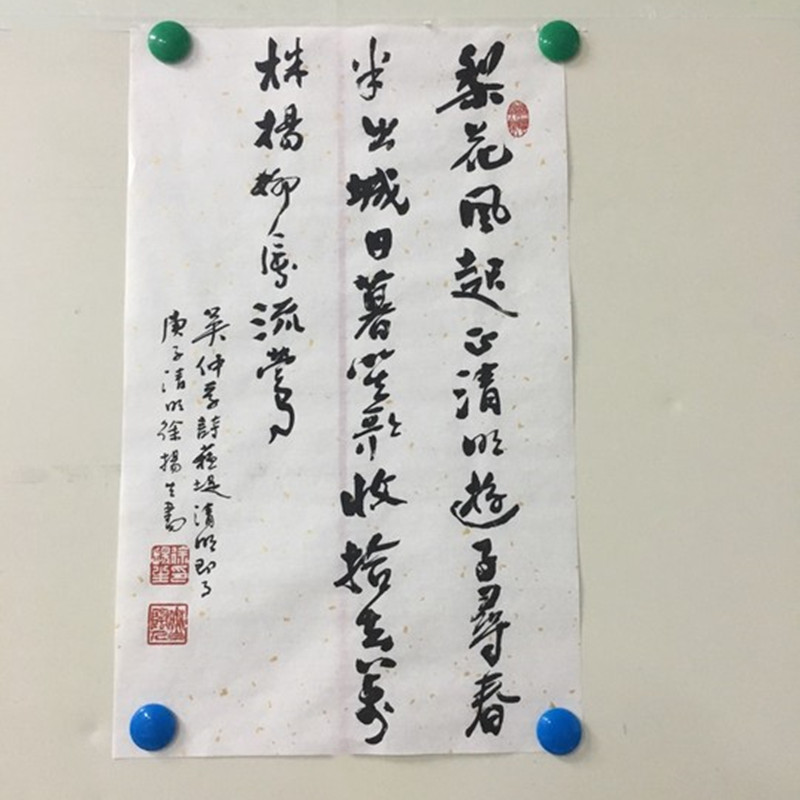 梨花風起正清明遊子尋春
半出城日暮笙歌收拾去萬
株楊柳屬流鶯
吳仲孚詩蘇堤清明即事
庚子清明徐揚生書